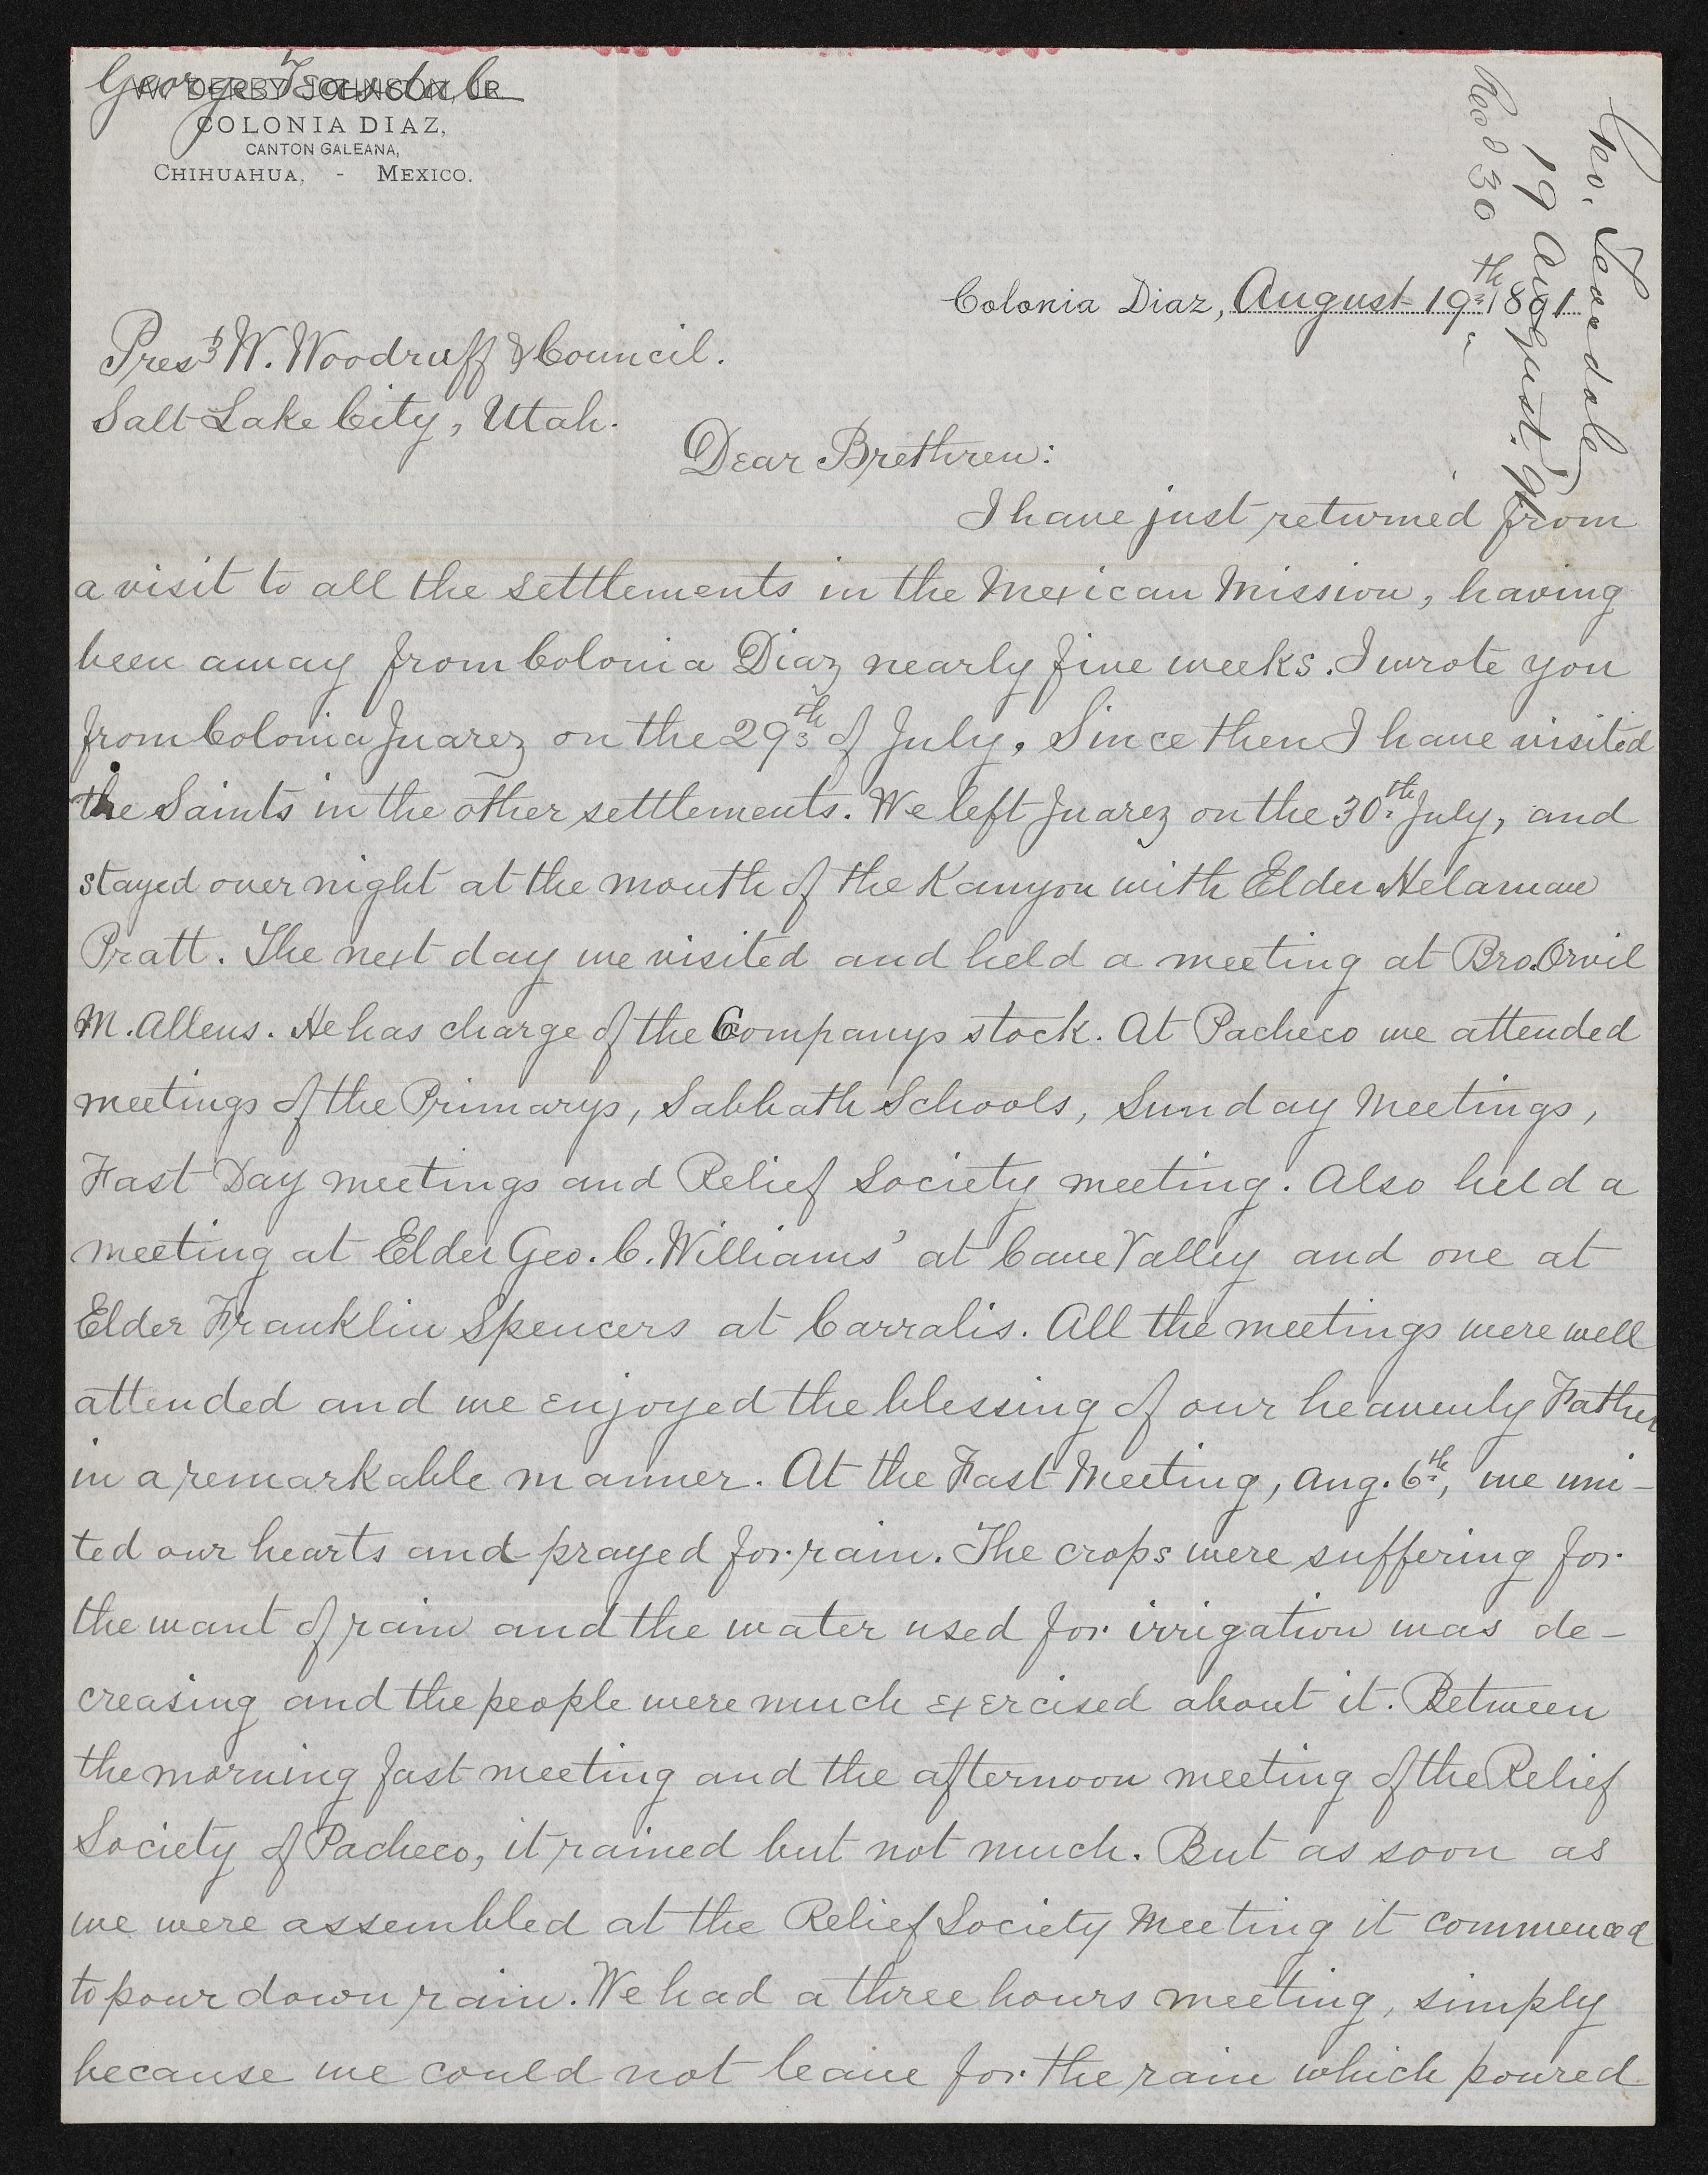 George Teasdale
W. DERBY JOHNSON, JR.
COLONIA DIAZ,
CANTON GALEANA,
CHIHUAHUA, - MEXICO.
Geo. Teasdale
19 August. 91
Recd 30 "
Colonia Diaz, August 19th 1891
Prest W. Woodruff & Council.
Salt Lake City, Utah.
Dear Brethren:
I have just returned from
a visit to all the settlements in the Mexican Mission, having
been away from Colonia Diaz nearly five weeks. I wrote you
from Colonia Juarez on the 29th of July. Since then I have visited
the Saints in the other settlements. We left Juarez on the 30th July, and
stayed over night at the mouth of the Kanyon with Elder Helaman
Pratt. The next day we visited and held a meeting at Bro. Orvil
M. Allens. He has charge of the Companys stock. At Pacheco we attended
meetings of the Primarys, Sabbath Schools, Sunday Meetings,
Fast Day meetings and Relief Society meeting. Also held a
meeting at Elder Geo. C. Williams' at Cave Valley and one at
Elder Franklin Spencers at Carralis. All the meetings were well
attended and we enjoyed the blessing of our heavenly Father
in a remarkable manner. At the Fast Meeting, Aug. 6th, we uni-
ted our hearts and prayed for rain. The crops were suffering for
the want of rain and the water used for irrigation was de-
creasing and the people were much exercised about it. Between
the morning fast meeting and the afternoon meeting of the Relief
Society of Pacheco, it rained but not much. But as soon as
we were assembled at the Relief Society Meeting it commenced
to pour down rain. We had a three hours meeting, simply
because we could not leave for the rain which poured